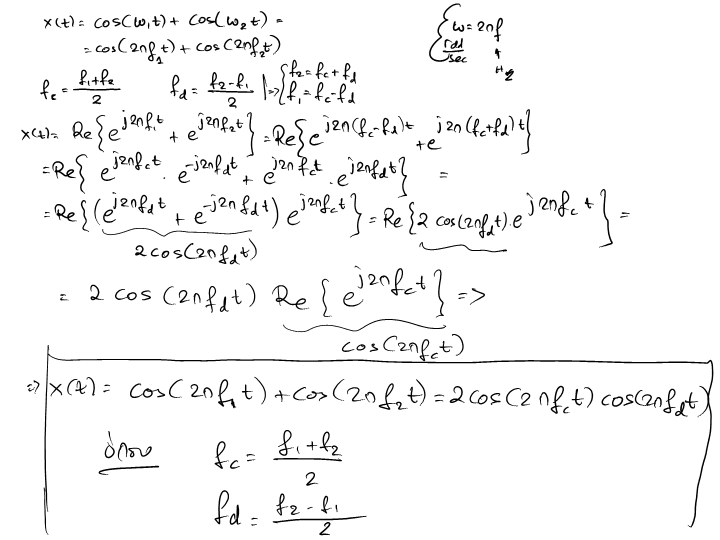 x(t) = cos(ω₁t) + cos(ω₂t) =
= cos(2πf₁t) + cos(2πf₂t)
{ω = 2πf
rad/sec Hz
f_c = (f₁+f₂)/2 f_d = (f₂-f₁)/2 |⇒ {f₂ = f_c + f_d
f₁ = f_c - f_d
x(t) = Re{e^{j2πf₁t} + e^{j2πf₂t}} = Re{e^{j2π(f_c-f_d)t} + e^{j2π(f_c+f_d)t}}
= Re{e^{j2πf_ct} · e^{-j2πf_dt} + e^{j2πf_ct} · e^{j2πf_dt}} =
= Re{(e^{j2πf_dt} + e^{-j2πf_dt}) e^{j2πf_ct}} = Re{2 cos(2πf_dt) · e^{j2πf_ct}} =
2cos(2πf_dt)
= 2 cos(2πf_dt) Re{e^{j2πf_ct}} =>
cos(2πf_ct)
=> x(t) = cos(2πf₁t) + cos(2πf₂t) = 2cos(2πf_ct) cos(2πf_dt)
όπου f_c = (f₁+f₂)/2
f_d = (f₂-f₁)/2